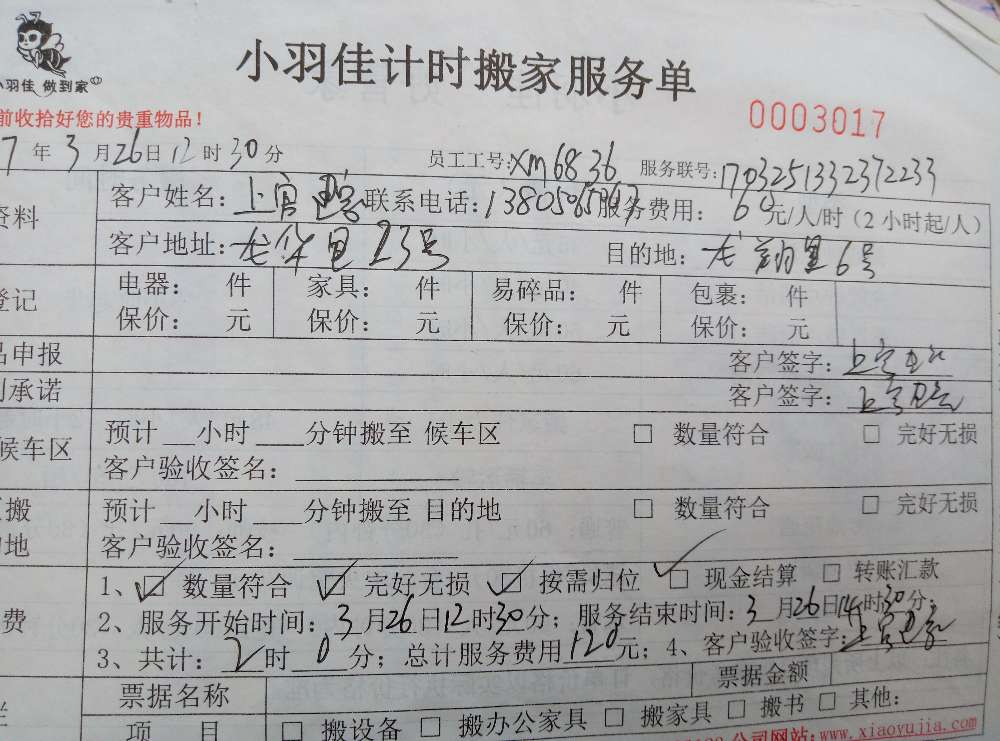 小羽佳 做到家
小羽佳计时搬家服务单
0003017
前收拾好您的贵重物品！
7 年 3 月 26 日 12 时 30 分 员工工号：xm6836 服务联号：1703251332372233
资料 客户姓名：上官 联系电话： 服务费用：60元/人/时（2 小时起/人）
客户地址：龙华里23号 目的地：龙翔里6号
登记 电器： 件 家具： 件 易碎品： 件 包裹： 件
保价： 元 保价： 元 保价： 元 保价： 元
品申报 客户签字：上官
承诺 客户签字：上官
候车区 预计 ___小时 ____分钟搬至 候车区 □ 数量符合 □ 完好无损
客户验收签名：
搬 预计 ___小时 ____分钟搬至 目的地 □ 数量符合 □ 完好无损
的地 客户验收签名：
费 1、☑ 数量符合 ☑ 完好无损 ☑ 按需归位 ☑ 现金结算 □ 转账汇款
2、服务开始时间：3 月 26 日 12 时 30 分；服务结束时间：3 月 26 日 14 时 30 分；
3、共计：2 时 0 分；总计服务费用 120 元；4、客户验收签字：上官
票据名称 票据金额
项 目 □ 搬设备 □ 搬办公家具 □ 搬家具 □ 搬书 □ 其他：
公司网站：www.xiaoyujia.com